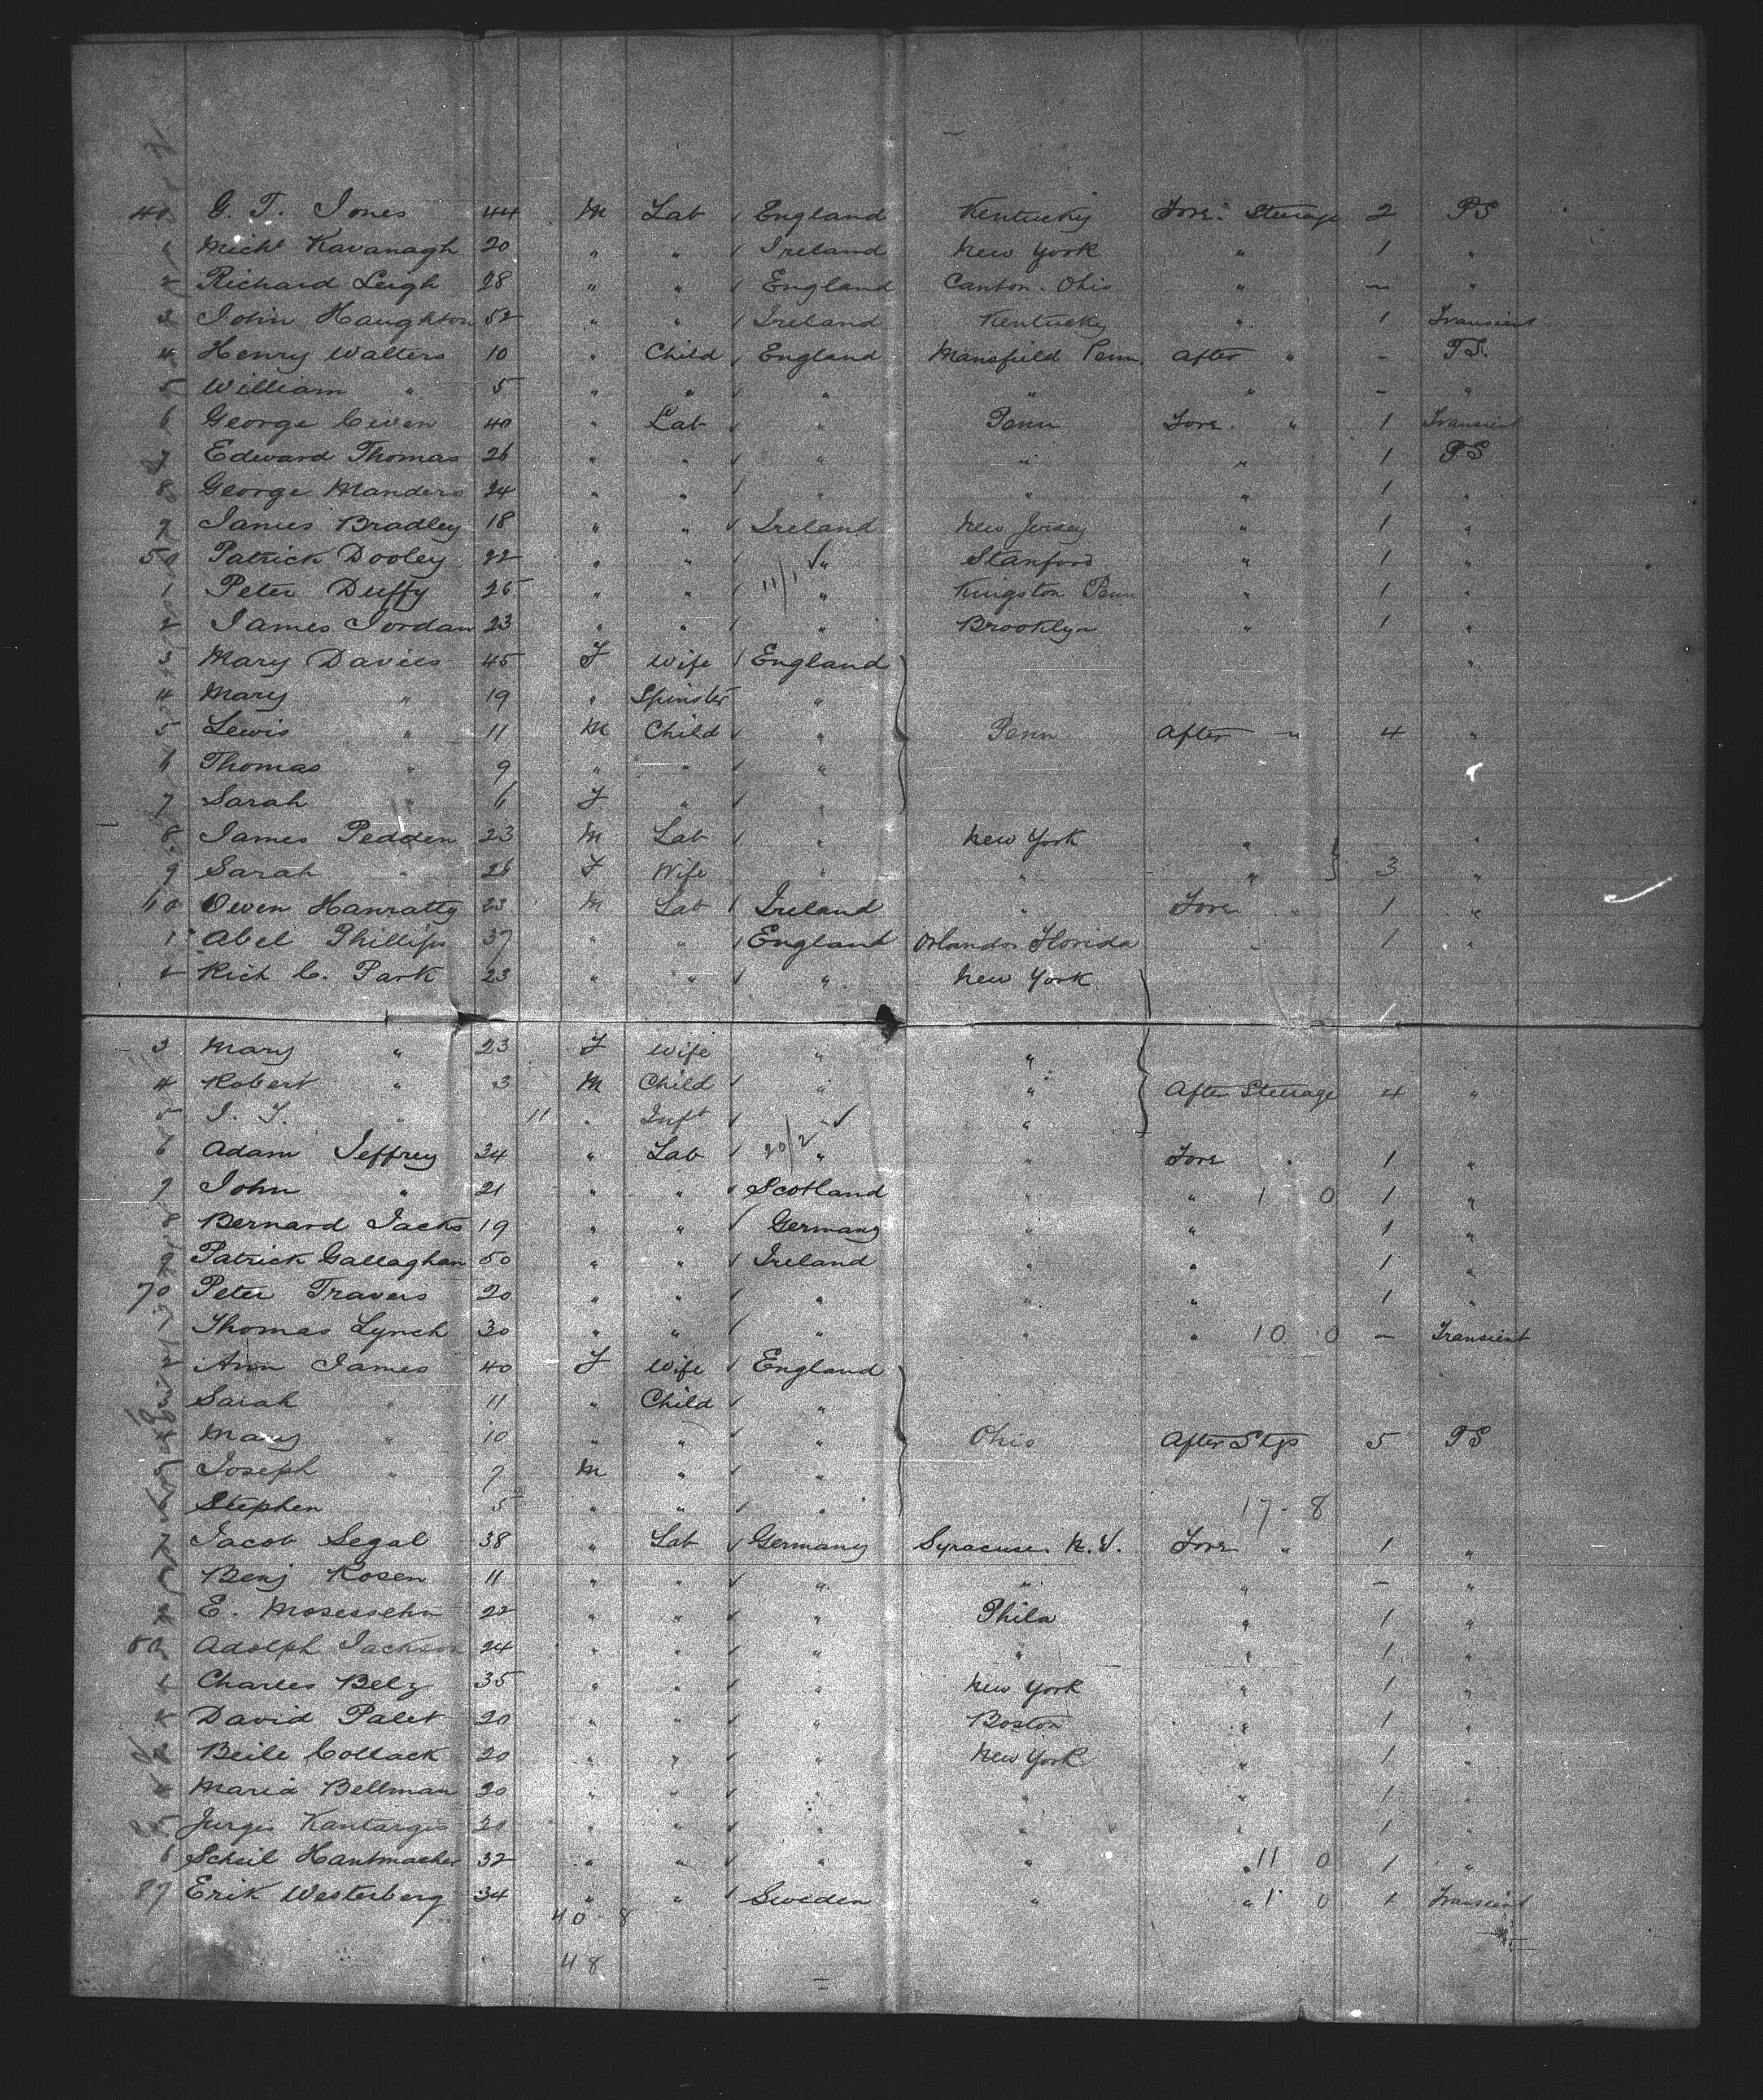 40 G. T. Jones 44 M Lab England Kentucky Fore Steerage 2 PS
1 Michl Kavanagh 20 " " Ireland New York " 1 "
2 Richard Leigh 28 " " England Canton. Ohio " - "
3 John Haughton 52 " " Ireland Kentucky " 1 Transient
4 Henry Walters 10 " Child England Mansfield Penn. After " - PS
5 William " 5 " " " " " - "
6 George Civen 40 " Lab " Penn Fore " 1 Transient
7 Edward Thomas 26 " " " " " 1 PS
8 George Manders 24 " " " " " 1 "
9 James Bradley 18 " " Ireland New Jersey " 1 "
50 Patrick Dooley 22 " " " Stanford " 1 "
1 Peter Duffy 25 " " 11/1 " Kingston Penn " 1 "
2 James Jordan 23 " " " Brooklyn " 1 "
3 Mary Davies 45 F Wife England "
4 Mary " 19 " Spinster "
5 Lewis " 11 M Child " Penn After " 4 "
6 Thomas " 9 " " "
7 Sarah " 6 F " "
8 James Pedden 23 M Lab " New York " "
9 Sarah " 26 F Wife " " " 3 "
60 Owen Hanratty 23 M Lab Ireland " Fore " 1 "
1 Abel Phillips 37 " " England Orlando. Florida " 1 "
2 Rich C. Park 23 " " " New York
3 Mary " 23 F Wife " "
4 Robert " 3 M Child " " After Steerage 4 "
5 " 11 " Inft "
6 Adam Jeffrey 34 " Lab 20/2 " " Fore " 1 "
7 John " 21 " " Scotland " " 1 0 1 "
8 Bernard Jacks 19 " " Germany " " 1 "
9 Patrick Gallaghan 50 " " Ireland " " 1 "
70 Peter Travers 20 " " " " " 1 "
1 Thomas Lynch 30 " " " " " 10 0 - Transient
2 Ann James 40 F Wife England
3 Sarah " 11 " Child "
4 Mary " 10 " " " Ohio After Stge 5 PS
5 Joseph " 7 M " "
6 Stephen 5 " " " 17 - 8
7 Jacob Segal 38 " Lab Germany Syracuse. N.Y. Fore " 1 "
8 Benj Rosen 11 " " " " " - "
9 E. Mosessehn 22 " " " Phila " 1 "
80 Adolph Jackson 24 " " " " " 1 "
1 Charles Belz 35 " " " New York " 1 "
2 David Palet 20 " " " Boston " 1 "
3 Beile Collack 20 " " " New York " 1 "
4 Maria Bellman 20 " " " " " 1 "
5 Jurgis Kantargis 20 " " " " " 1 "
6 Scheil Hantmacher 32 " " " " " 11 0 1 "
87 Erik Westerberg 34 " " Sweden " " 1 0 1 Transient
40 8
48